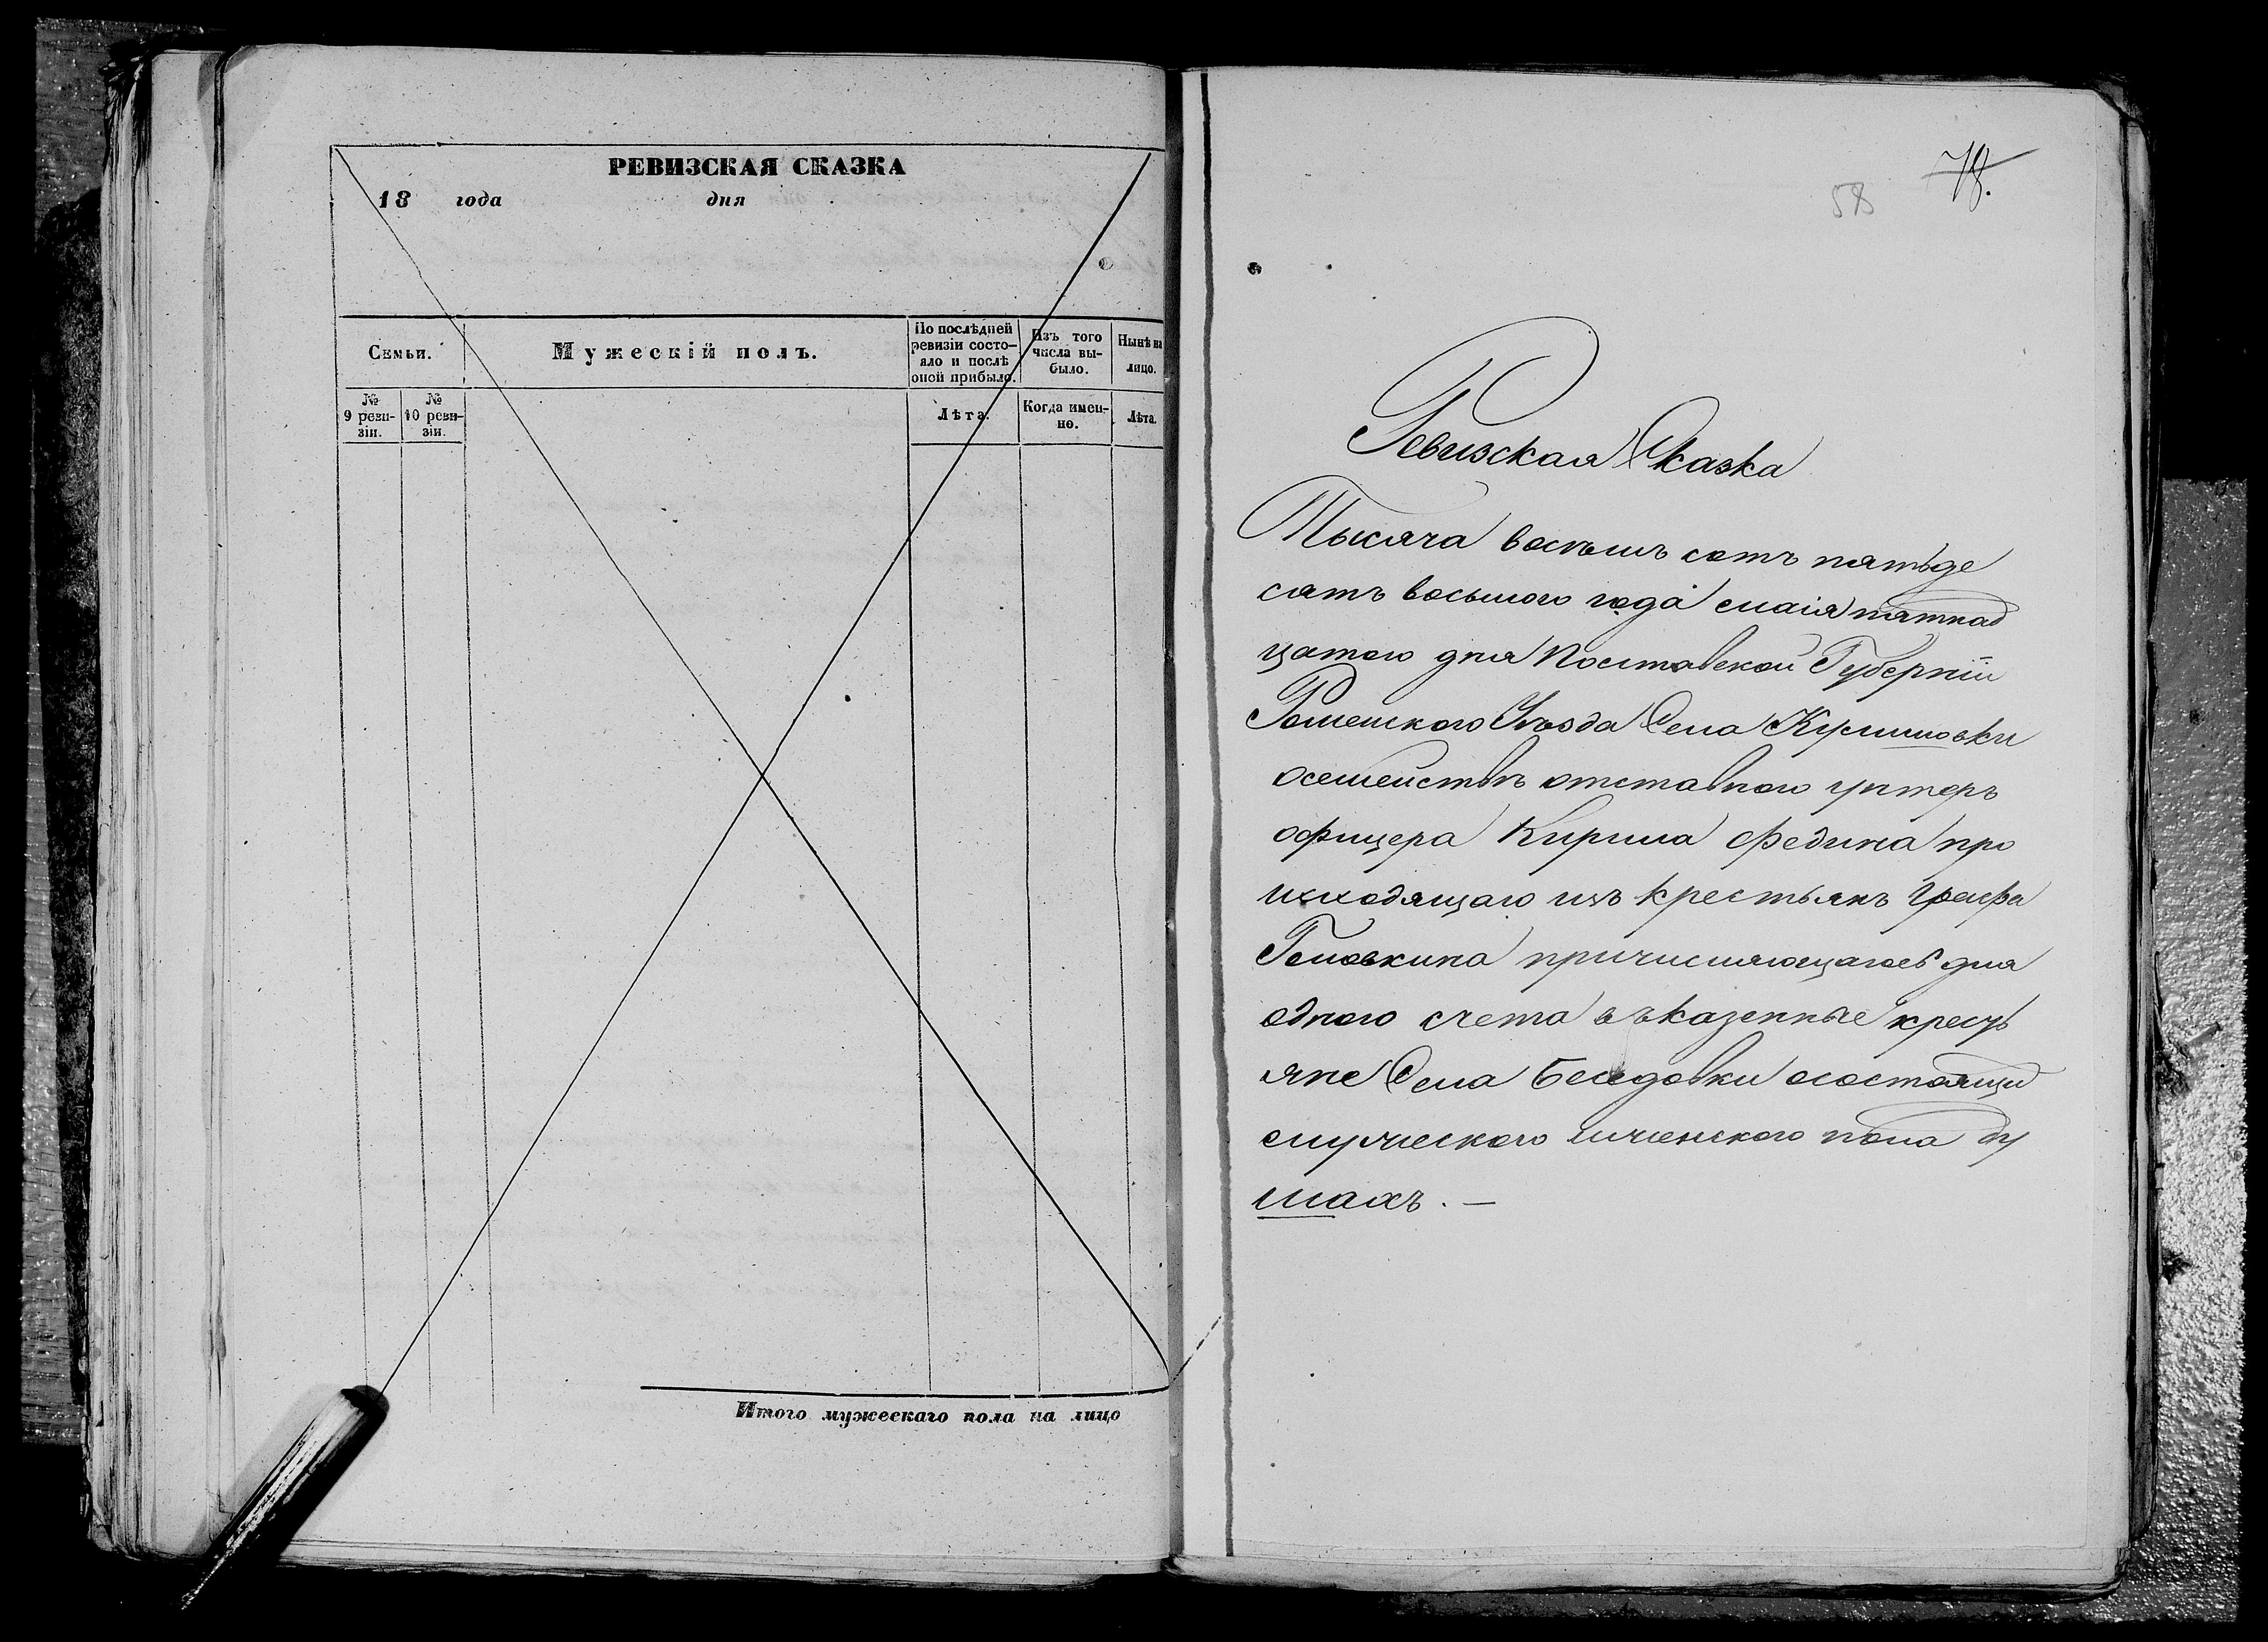 РЕВИЗСКАЯ СКАЗКА
18 года дня
Семьи.
Мужескій полъ.
По послѣдней ревизіи состо-
яло и послѣ
оной прибыло.
Изъ того
числа вы-
было.
Нынѣ на
лицо.
№
9 реви-
зіи.
№
10 реви-
зіи.
Лѣта.
Когда имен-
но.
Лѣта.
Итого мужескаго пола на лицо
78.
58
Ревизская Сказка
Тысяча восемь сотъ пятьде
сятъ восьмого года маія пятнад
цатого дня Полтавской Губерніи
Роменского Уѣзда Села
осемействѣ отставного унтеръ
офицера Кирила Федина про
исходящаго изъ крестьянъ Графа
Головкина причисляющагось для
одного счета въ казенные кресть
яне Села осостоящи
мужеского иженского пола ду
шахъ. —